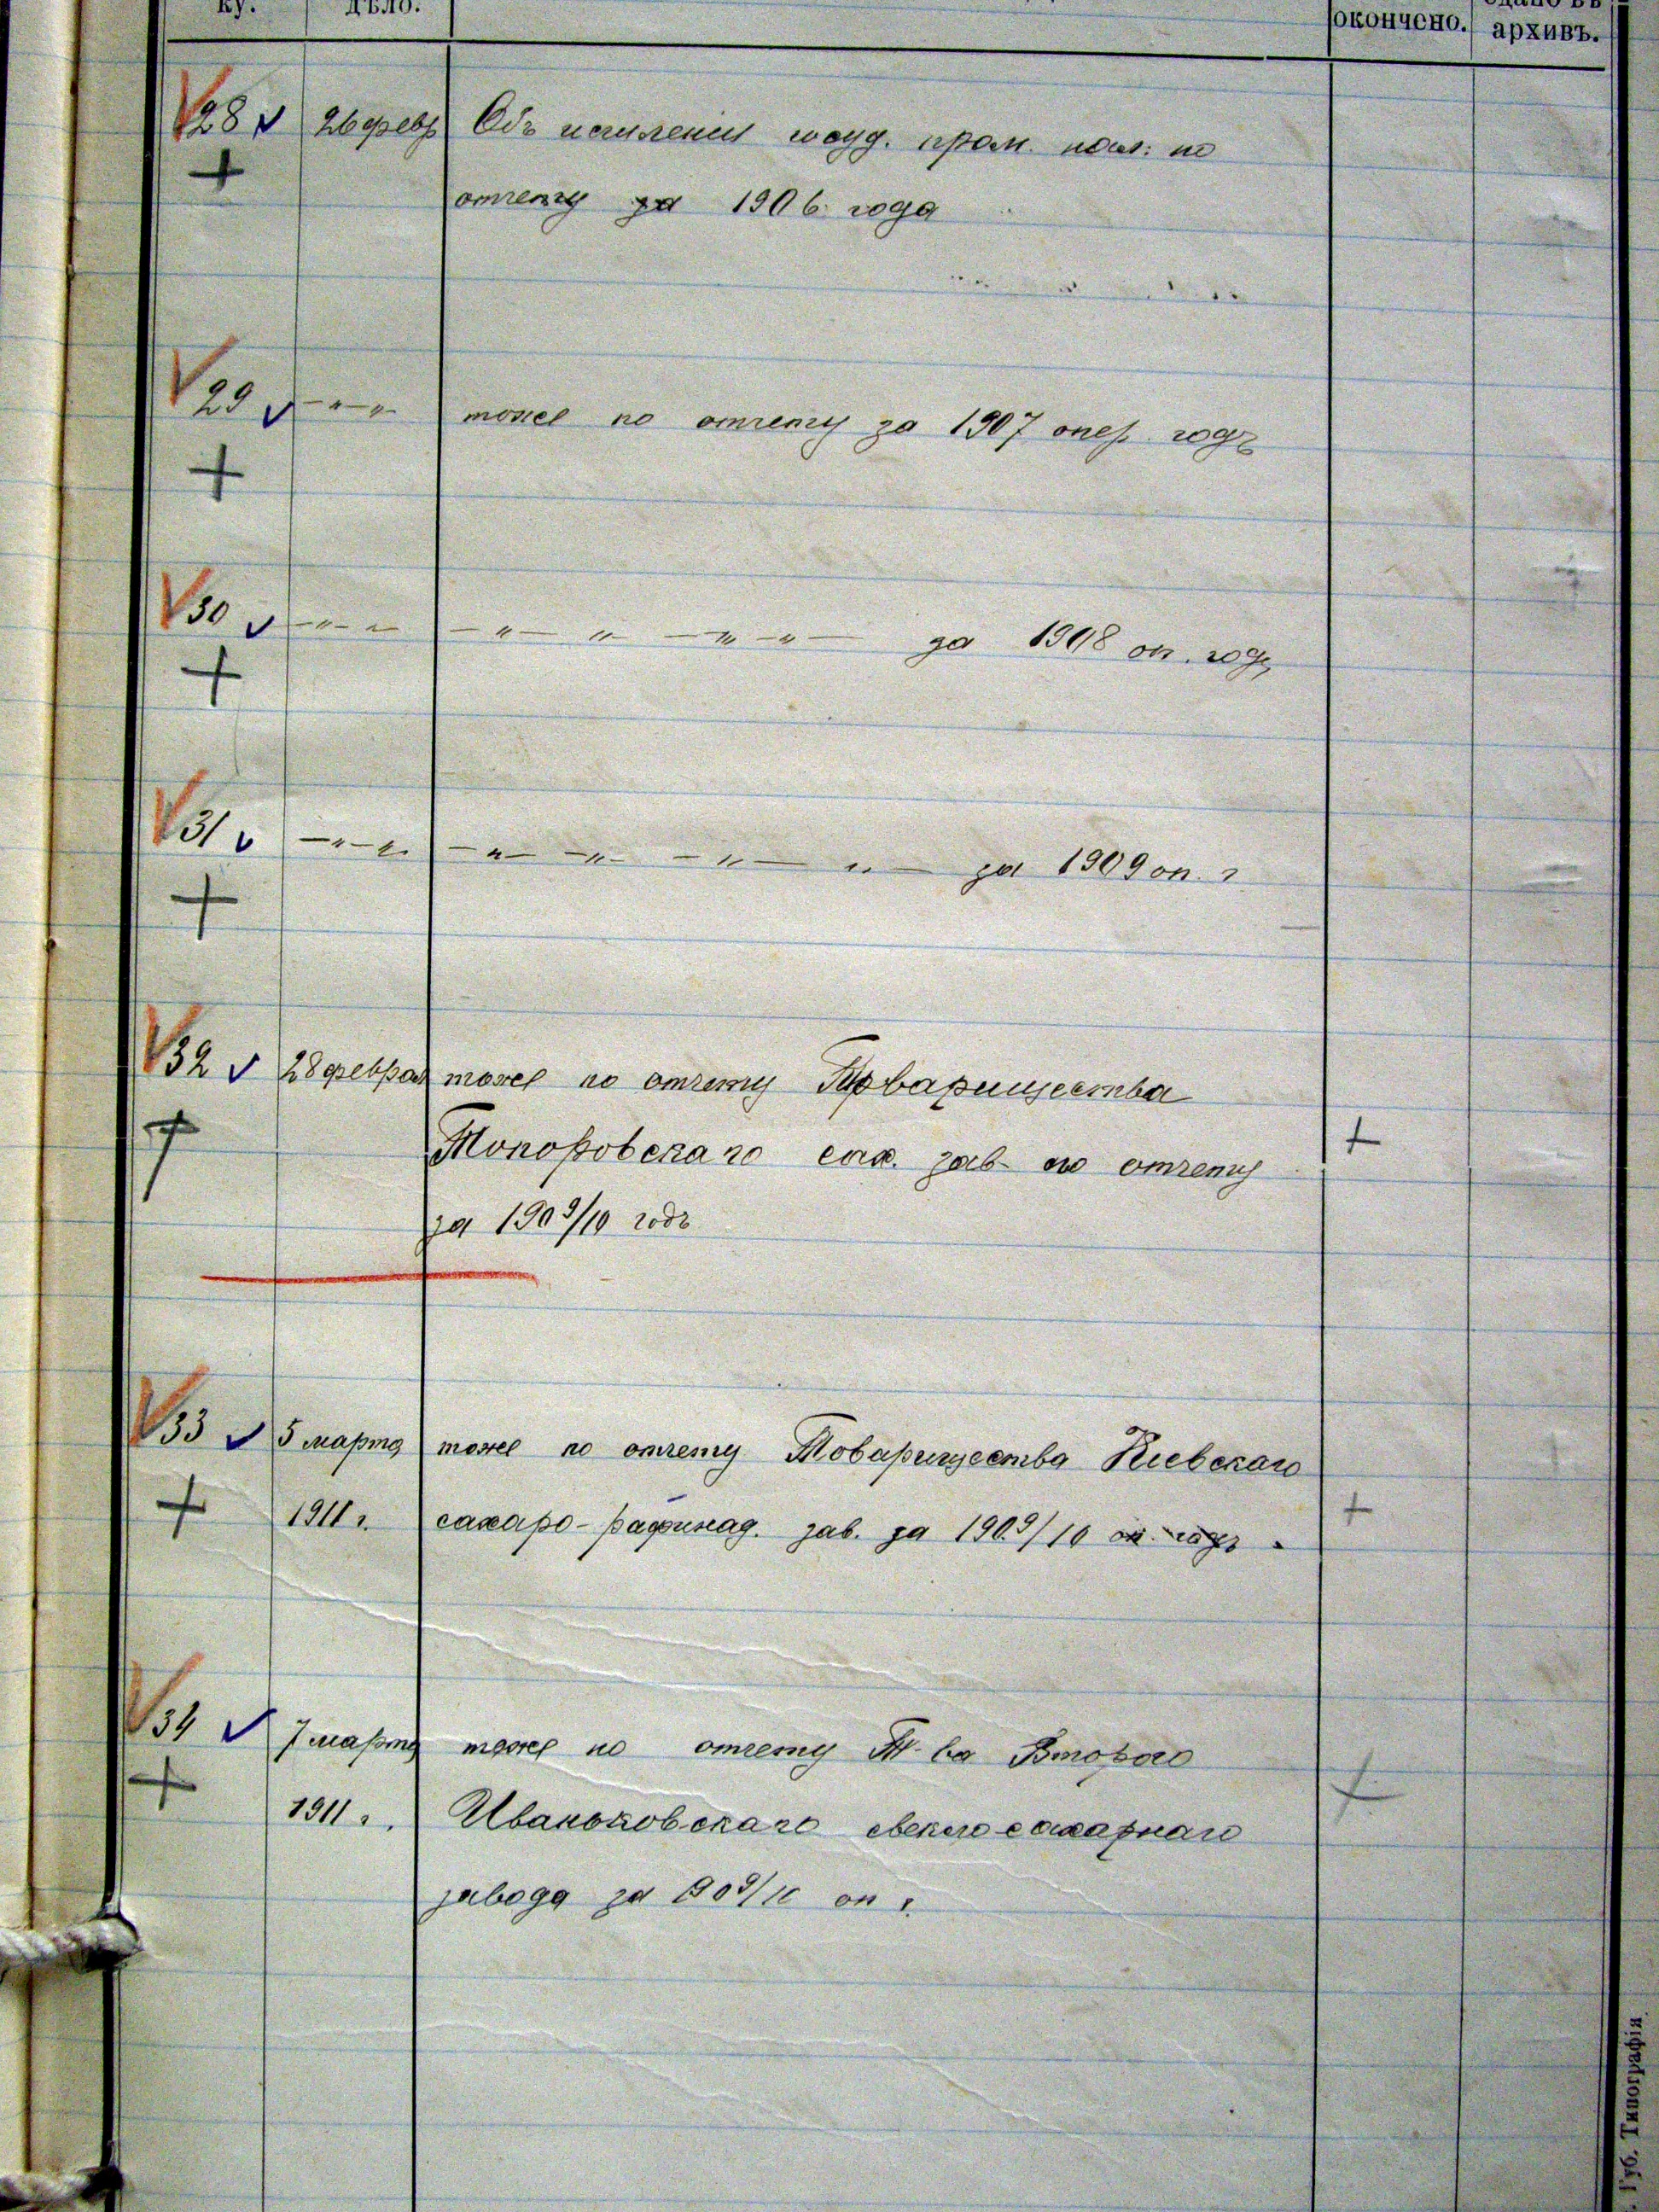 ку. дѣло. окончено. сдано въ
архивъ.
28 26 февр Объ исчисленіи госуд. пром. нал: по
отчету за 1906 года
29 — „ — „ — тоже по отчету за 1907 опер. годъ
30 — „ — — — „ — „ — — „ — „ — за 1908 оп. годъ
31 — „ — „ — — „ — — „ — — „ — „ — за 1909 оп. г
32 28 феврал тоже по отчету Товарищества
Топоровскаго сах. зав. по отчету +
за 1909/10 годъ
33 5 марта тоже по отчету Товарищества Кіевскаго
1911 г. сахаро-рафинад. зав. за 1909/10 оп. годъ +
34 7 марта тоже по отчету Т-ва Второго
1911 г. Иваньковскаго свекло-сахарнаго +
завода за 1909/10 оп г.
Губ. Типографія